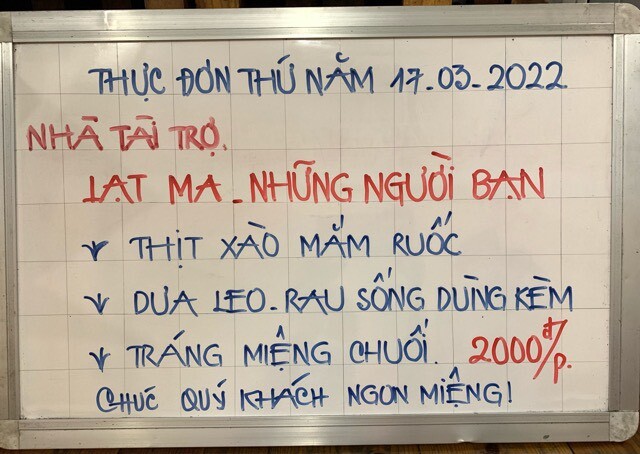 THỰC ĐƠN THỨ NĂM 17-03-2022
NHÀ TÀI TRỢ.
LẠT MA - NHỮNG NGƯỜI BẠN
THỊT XÀO MẮM RUỐC
DƯA LEO - RAU SỐNG DÙNG KÈM
TRÁNG MIỆNG CHUỐI. 2000đ/p.
CHÚC QUÝ KHÁCH NGON MIỆNG!